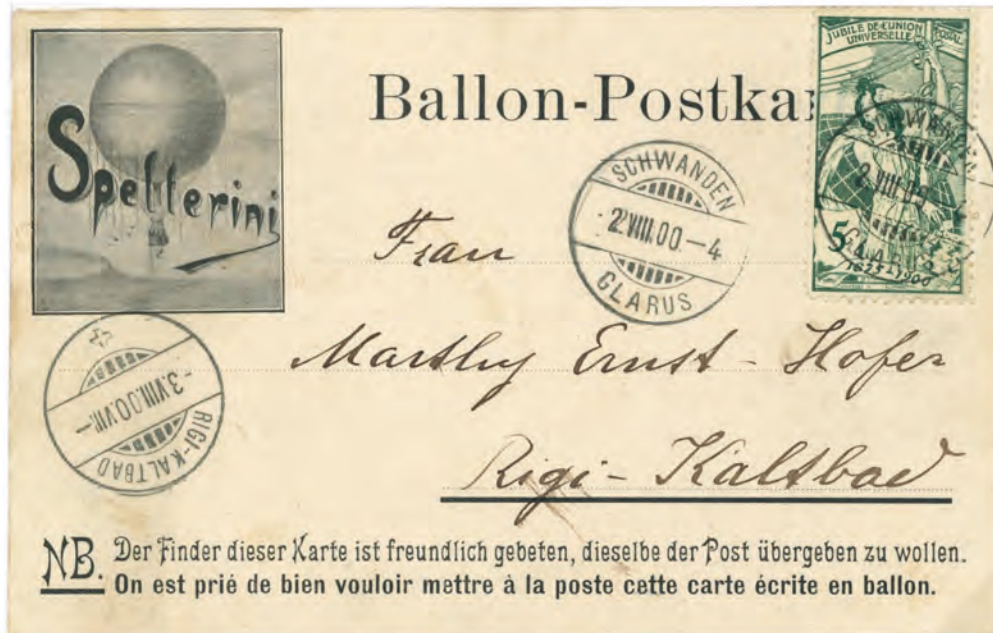 Spelterini
Ballon-Postka
JUBILÉ DE L'UNION POSTALE
UNIVERSELLE
5
1875-1900
SCHWANDEN
2.VIII.00-4
GLARUS
SCHWANDEN
2.VIII.00
GLARUS
Frau
Marthy Ernst-Hofer
Rigi-Kaltbad
-3.VIII.00.VII-
RIGI-KALTBAD
NB. Der Finder dieser Karte ist freundlich gebeten, dieselbe der Post übergeben zu wollen.
On est prié de bien vouloir mettre à la poste cette carte écrite en ballon.